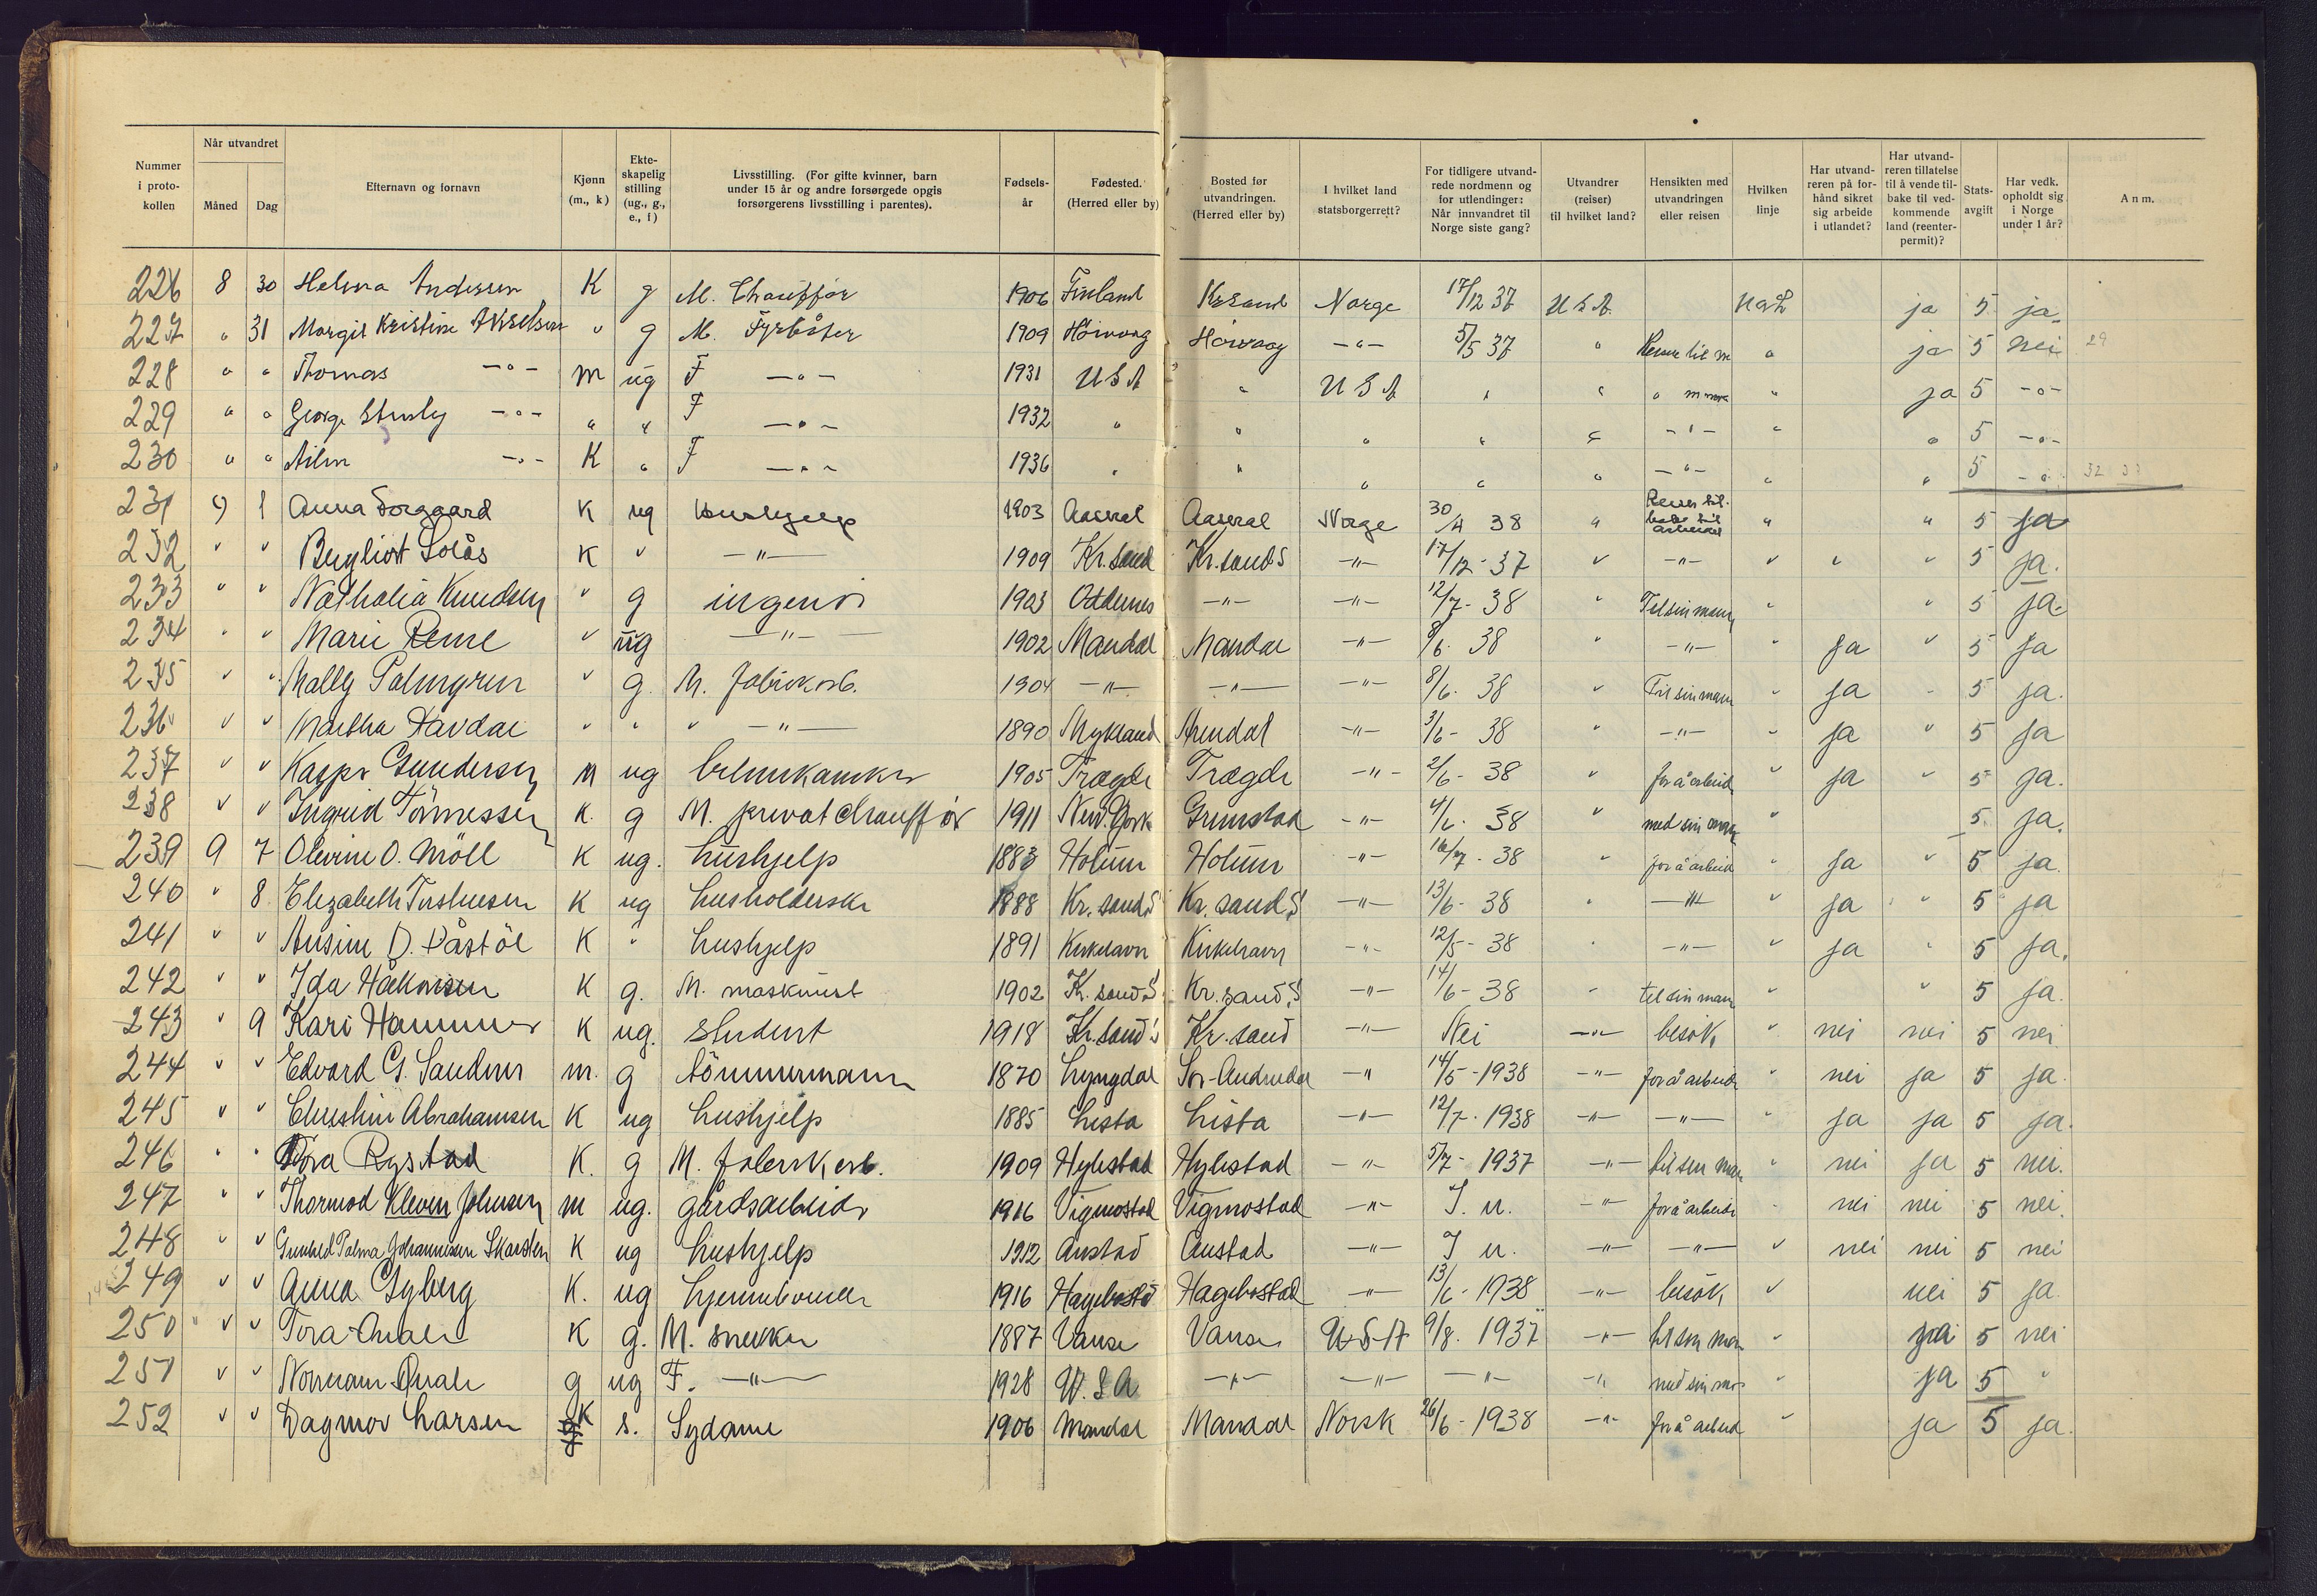 Nummer i proto- kollen | Når utvandret | Måned | Dag | Efternavn og fornavn | Kjønn (m., k) | Ekte- skapelig stilling (ug., g., e., f) | Livsstilling. (For gifte kvinner, barn under 15 år og andre forsørgede opgis forsørgerens livsstilling i parentes). | Fødsels- år | Fødested. (Herred eller by) | Bosted før utvandringen. (Herred eller by) | I hvilket land statsborgerrett? | For tidligere utvand- rede nordmenn og for utlendinger: Når innvandret til Norge siste gang? | Utvandrer (reiser) til hvilket land? | Hensikten med utvandringen eller reisen | Hvilken linje | Har utvand- reren på for- hånd sikret sig arbeide i utlandet? | Har utvand- reren tillatelse til å vende til- bake til ved- kommende land (reenter- permit)? | Stats- avgift | Har vedk. opholdt sig i Norge under 1 år? | Anm.
226 8 30 Helma Andersen K g M. Chauffør 1906 Finland Kr.sand Norge 17/12 37 U S A NAL ja 5 ja
227 " 31 Margit Kristine Akselsen " g M. Fyrbøter 1909 Høivaag Høivaag -"- 5/5 37 " Reiser til m " ja 5 nei 29
228 " " Thomas -"- m ug F -"- 1931 U S A " U S A " " " " ja 5 -"-
229 " " George -"- " " F -"- 1932 " " " " " -"- " " 5 -"-
230 " " -"- K " F -"- 1936 " " " " " -"- " " 5 -"- 32
231 9 1 Anna K ug hushjelp 1903 Aaseral Aaseral Norge 30/4 38 " Reiser til- bake til arbeide " " 5 ja
232 " " Bergliot Solås K " -"- 1909 Kr.sand Kr.sand S -"- 17/12-37 " -"- " " " 5 ja.
233 " " Nathalia Knudsen " g ingeniør 1903 Oddernes -"- -"- 12/7-38 " Til sin mann " " 5 ja.
234 " " Marie " ug -"- 1902 Mandal Mandal -"- 8/6-38 " -"- " ja " 5 ja
235 " " Mally Palmgren " g. M. fabrikarb. 1904 -"- -"- -"- 8/6-38 " Til sin mann " ja " 5 ja.
236 " " Martha Havdal " " " -"- 1890 Mykland Arendal -"- 3/6-38 " -"- " ja " 5 ja
237 " " Kaspar Gundersen M ug 1905 Trægde Trægde -"- 2/6-38 " for å arbeide " ja " 5 ja.
238 " " Ingrid Tönnessen K. g M. privat chauffør 1911 New York Grimstad -"- 4/6-38 " med sin mann " 5 ja.
239 9 7 Olevine O. Möll K ug. hushjelp 1883 Holum Holum -"- 16/7-38 " for å arbeide " ja " 5 ja.
240 " 8 Elizabeth K ug husholderske 1888 Kr.sand S Kr.sand S -"- 13/6-38 " -"- " ja " 5 ja
241 " " K " hushjelp 1891 Kirkehavn Kirkehavn -"- 12/5-38 " -"- " ja " 5 ja.
242 " " Ida Håkonsen K g. M. maskinist 1902 Kr.sand S Kr.sand S -"- 14/6-38 " til sin mann " " 5 ja.
243 " 9 Kari Hammer K ug. student 1918 Kr.sand S Kr.sand -"- Nei -"- besök " nei nei 5 nei
244 " " Edvard G. m. g tömmermann 1870 Lyngdal Sör-Audnedal -"- 14/5-1938 -"- for å arbeide " nei ja 5 ja
245 " " Christine Abrahamsen K ug hushjelp 1885 Lista Lista -"- 12/7-1938 -"- -"- " ja ja 5 ja.
246 " " Tora Rystad K. g M. fabrikkarb. 1909 Hylestad Hylestad -"- 5/7-1937 -"- til sin man " nei ja 5 nei.
247 " " Thormod Kleven Johnsen m ug. gårdsarbeider 1916 Vigmostad Vigmostad -"- I. u. -"- for å arbeide " nei nei 5 nei.
248 " " Gunhild Palma Johannessen Skarsten K ug hushjelp 1912 Austad Austad -"- I u. -"- -"- " nei nei 5 nei
249 " " Anna Gyberg K. ug hjemmeværende 1916 Hægebostad Hægebostad -"- 13/6-1938 -"- besök " nei 5 ja
250 " " Tora Qvale K g. M. snekker 1887 Vanse Vanse U S A 9/8. 1937 -"- til sin man " ja 5 nei
251 " " Norman Qvale g ug F. -"- 1928 U. S A -"- -"- -"- -"- med sin mor " ja 5 "
252 " " Dagmar Larsen K s. Sydame 1906 Mandal Mandal Norsk 26/6-1938 -"- for å arbeide " ja 5 ja.